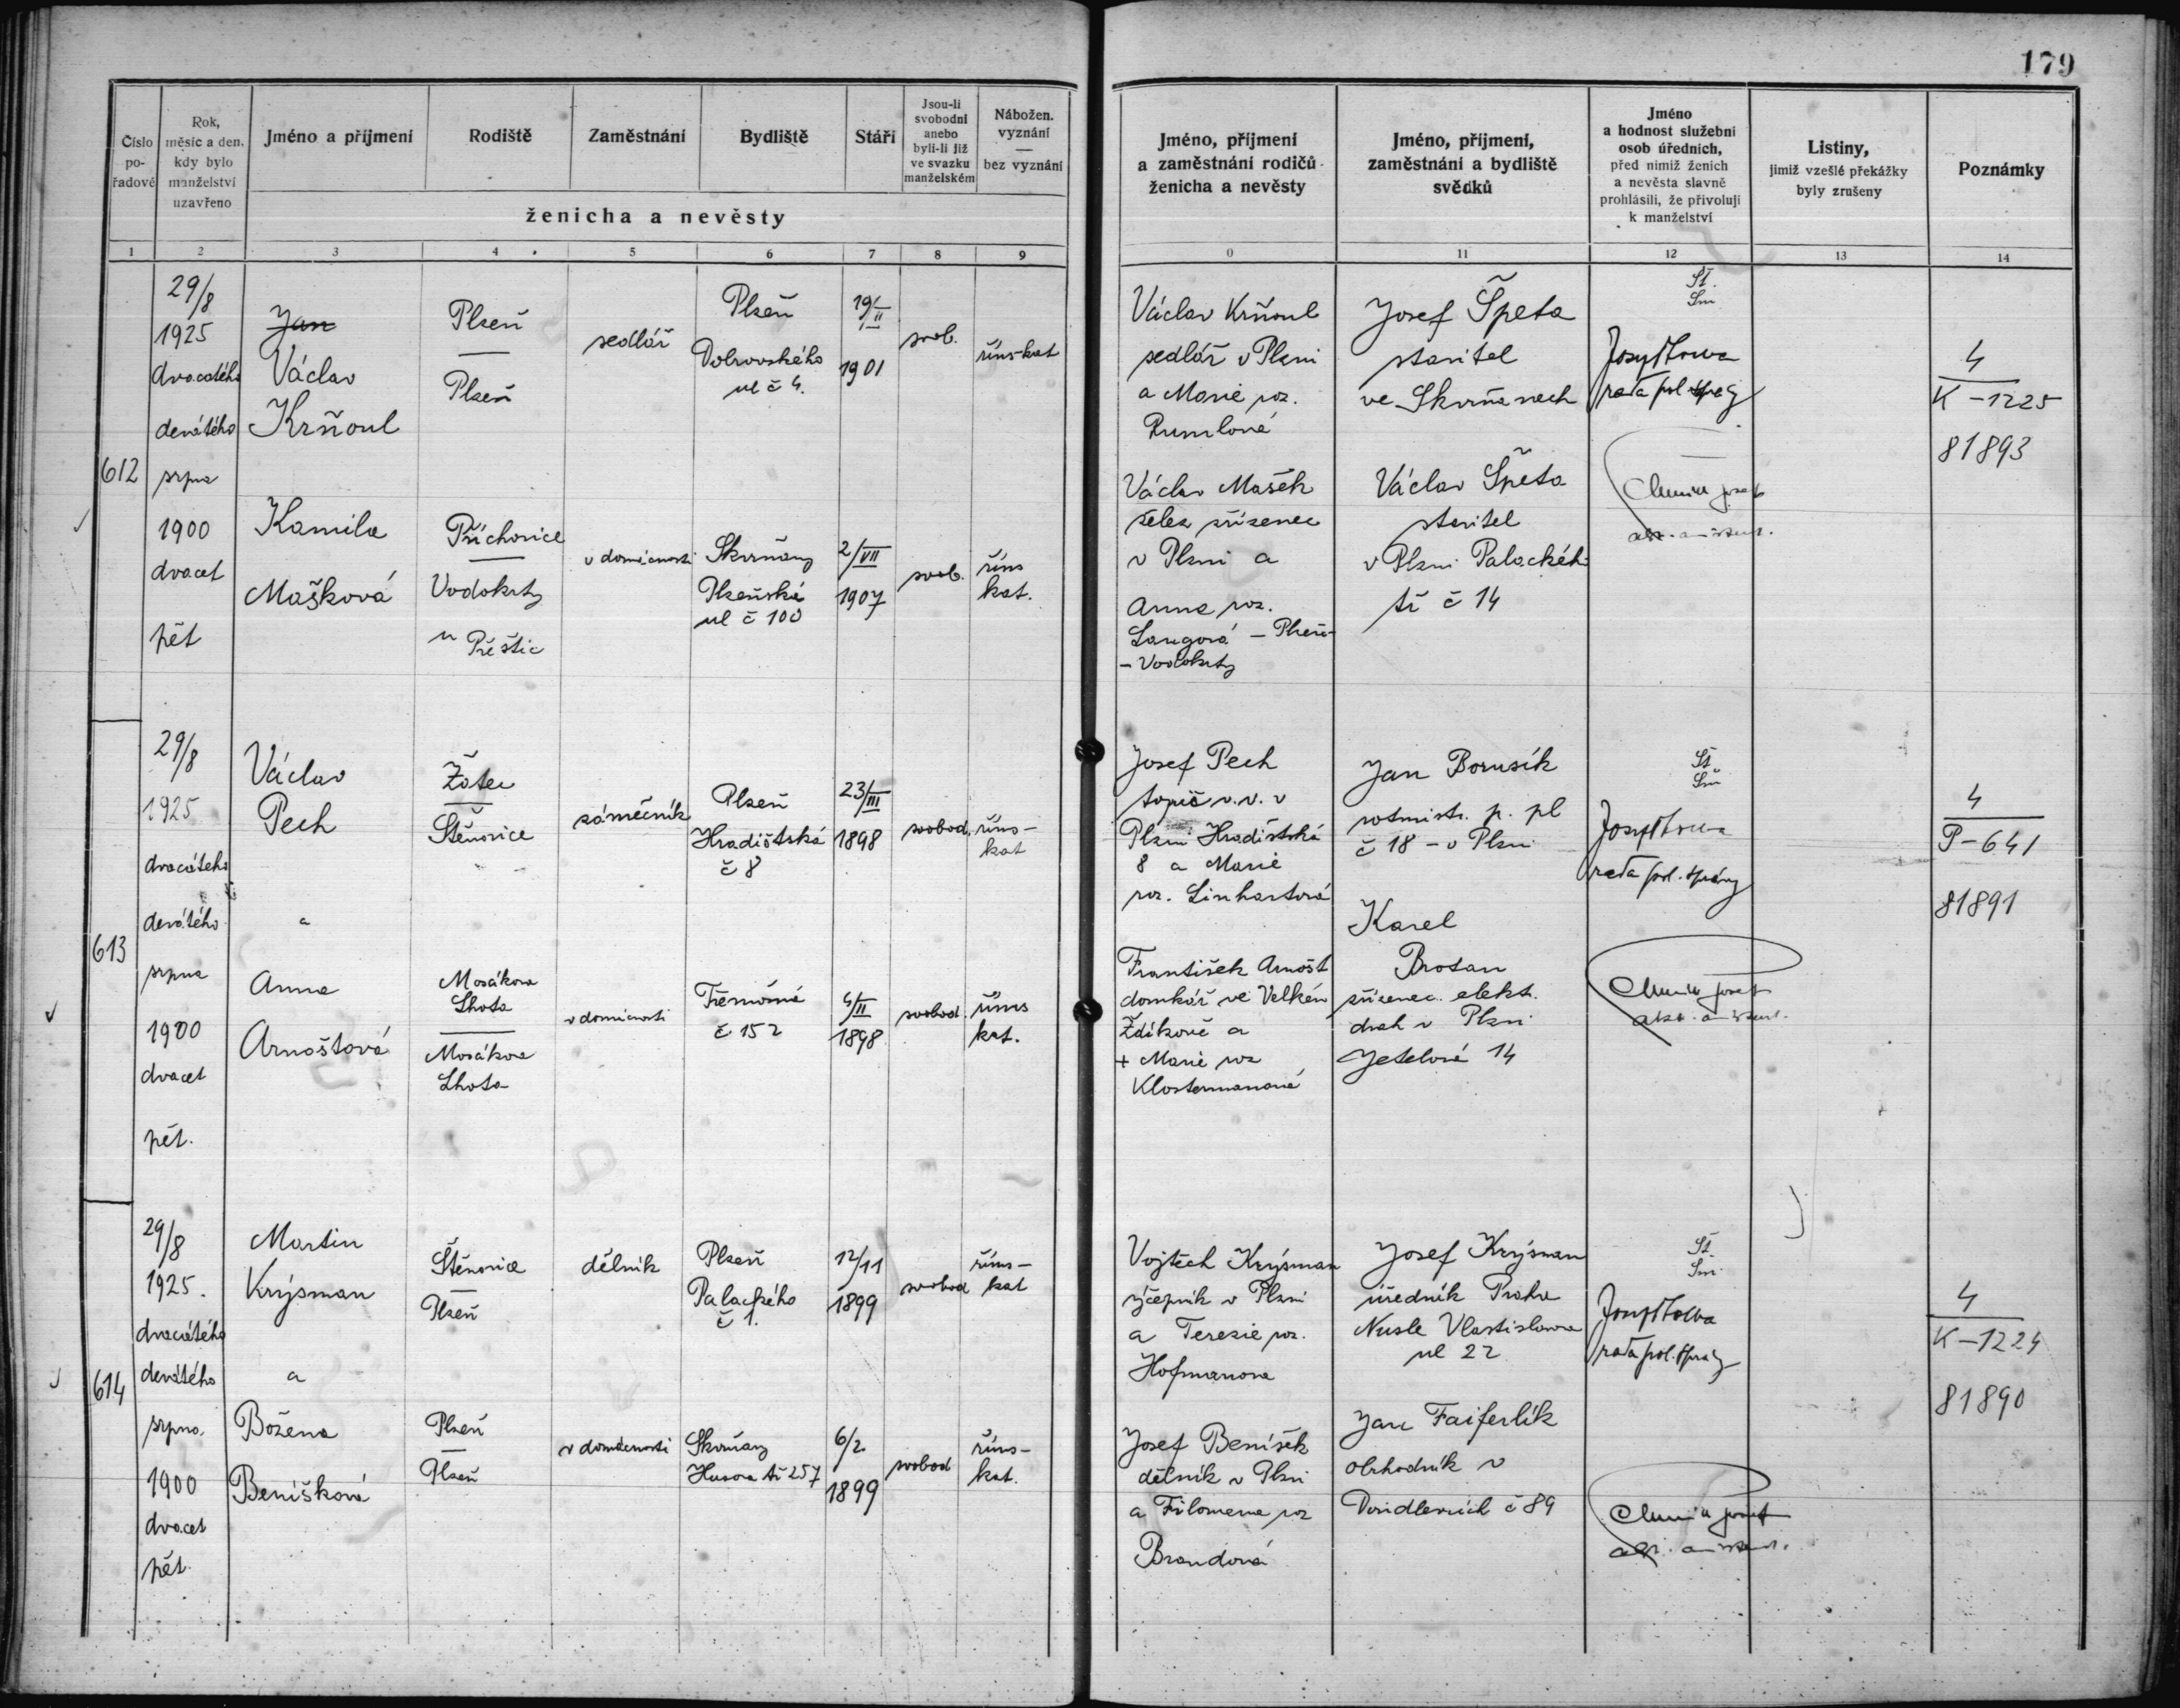 179
Číslo
po-
řadové
Rok,
měsíc a den,
kdy bylo
manželství
uzavřeno
Jméno a příjmení
Rodiště
Zaměstnání
Bydliště
Stáří
Jsou-li
svobodni
anebo
byli-li již
ve svazku
manželském
Nábožen.
vyznání
—
bez vyznání
ženicha a nevěsty
Jméno, příjmení
a zaměstnání rodičů
ženicha a nevěsty
Jméno, příjmení,
zaměstnání a bydliště
svědků
Jméno
a hodnost služební
osob úředních,
před nimiž ženich
a nevěsta slavně
prohlásili, že přivolují
k manželství
Listiny,
jimiž vzešlé překážky
byly zrušeny
Poznámky
1 2 3 4 5 6 7 8 9 0 11 12 13 14
612
29/8
1925
dvacátého
devátého
srpna
1900
dvacet
pět
Jan
Václav
Krňoul
Plzeň
Plzeň
sedlář
Plzeň
Dobrovského
ul č 4.
19/II
1901
svob.
řims-kat
Václav Krňoul
sedlář v Plzni
a Marie roz.
Rumlová
Josef Špeta
stavitel
ve Skvrňanech
Št.
Sm
rada pol. správy
4
K-1225
81893
Kamila
Mašková
Příchovice
Vodokrty
u Přeštic
v domácnosti
Skvrňany
Plzeňská
ul č 100
2/VII
1907
svob.
řims
kat.
Václav Mašek
želez zřízenec
v Plzni a
Anna roz.
Langová - Plzeň-
- Vodokrty
Václav Špeta
stavitel
v Plzni Palackéh
tř č 14
613
29/8
1925
dvacátého
devátého
srpna
1900
dvacet
pět.
Václav
Pech
a
Žatec
Štěnovice
zámečník
Plzeň
Hradištská
č 8
23/III
1898
svobod.
řims-
kat
Josef Pech
topič v. v. v
Plzni Hradištská
8 a Marie
roz. Linhartová
Jan Borusík
rotmistr. p. pl
č 18 - v Plzni
Št.
Sm
rada pol. správy
4
P-641
81891
Anna
Arnoštová
Mosákova
Lhota
Mosákova
Lhota
v domácnosti
Třemošná
č 152
4/II
1898
svobod.
řims
kat.
František Arnošt
domkář ve Velkém
Ždíkově a
+ Marie roz
Klostermanová
Karel
Brotan
zřízenec elekt.
drah v Plzni
Jetelová 14
614
29/8
1925.
dvacátého
devátého
srpna.
1900
dvacet
pět.
Martin
Krýsman
a
Štěnovice
Plzeň
dělník
Plzeň
Palackého
č 1.
12/11
1899
svobod
řims-
kat
Vojtěch Krýsman
výčepník v Plzni
a Terezie roz.
Hofmanova
Josef Krýsman
úředník Praha
Nusle Vlastislavova
ul 22
Št.
Sm.
rada pol. správy
4
K-1224
81890
Božena
Benišková
Plzeň
Plzeň
v domácnosti
Skvrňany
Husova tř 257
6/2.
1899
svobod
řims-
kat.
Josef Benišek
dělník v Plzni
a Filomena roz
Brandová
Jan Faiferlík
obchodník v
Doudlevcích č 89